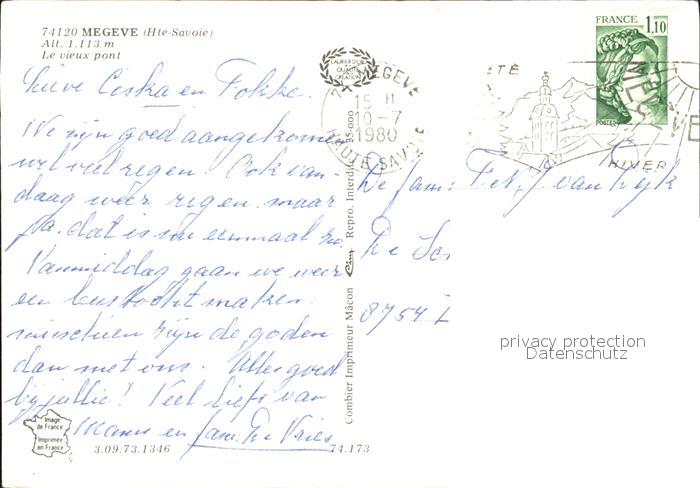 74120 MEGEVE (Hte-Savoie)
Alt. 1.113 m
Le vieux pont
Lieve Ceska en Fokke.
We zijn goed aangekomen
wel veel regen. Ook van-
daag weer regen, maar
ja, dat is nu eenmaal zo.
Vanmiddag gaan we weer
een bustocht maken.
misschien zijn de goden
dan met ons. Alles goed
bij jullie? Veel liefs van
Mans en Jans de Vries
Image
de France
Imprimée
en France
3.09.73.1346
74.173
Combier Imprimeur Mâcon Cim Repro. Interdite 35-000
LAURIER D'OR
QUALITE
CREATION
MEGEVE
15 H
10-7
1980
HAUTE SAVOIE
ETE
HIVER
FRANCE
1,10
POSTES
De fam. van Dijk
De
8754
privacy protection
Datenschutz